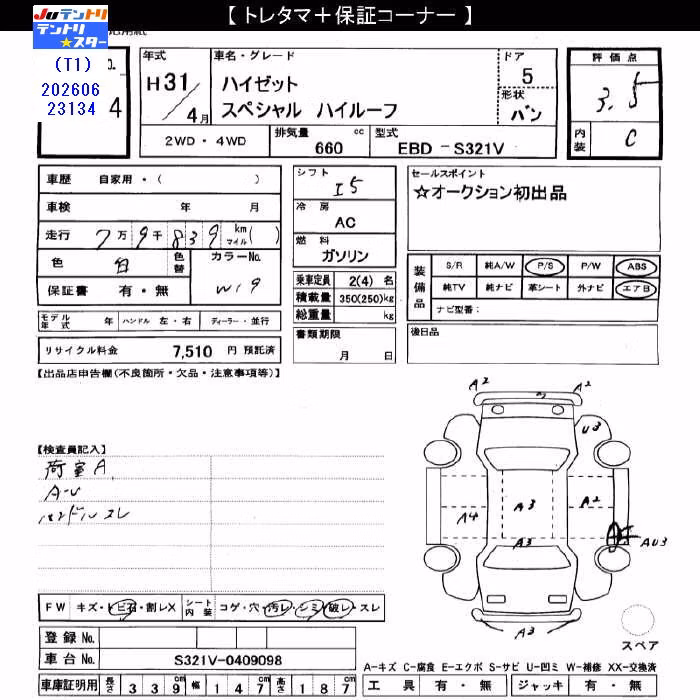 【 トレタマ＋保証コーナー 】
JUテントリ
テントリ
★スター
(T1)
202606
23134
No.
4
年式
H31/4月
車名・グレード
ハイゼット
スペシャル ハイルーフ
ドア
5
形状
バン
評価点
3.5
内装
C
2WD・4WD
排気量 660 cc
型式 EBD - S321V
車歴 自家用・( )
車検 年 月
走行 7万9千839 km マイル( )
色 白 色替
カラーNo. W19
保証書 有・無
モデル年式 年 ハンドル 左・右 ディーラー・並行
リサイクル料金 7,510 円 預託済
シフト
I5
冷房
AC
燃料
ガソリン
乗車定員 2(4) 名
積載量 350(250)kg
総重量 kg
書類期限
月 日
セールスポイント
☆オークション初出品
装備品
S/R 純A/W P/S P/W ABS
純TV 純ナビ 革シート 外ナビ エアB
ナビ型番：
後日品
【出品店申告欄(不良箇所・欠品・注意事項等)】
【検査員記入】
荷室A
A-U
ハンドルスレ
A2
A2
U3
A4
A3
A2
A3
AU3
A3
スペア
FW キズ・トビ石・割レX シート内装 コゲ・穴・汚レ・シミ・破レ・スレ
登録No.
車台No. S321V-0409098
車庫証明用 長さ 339cm 幅 147cm 高さ 187cm
A-キズ C-腐食 E-エクボ S-サビ U-凹ミ W-補修 XX-交換済
工具 有・無 ジャッキ 有・無